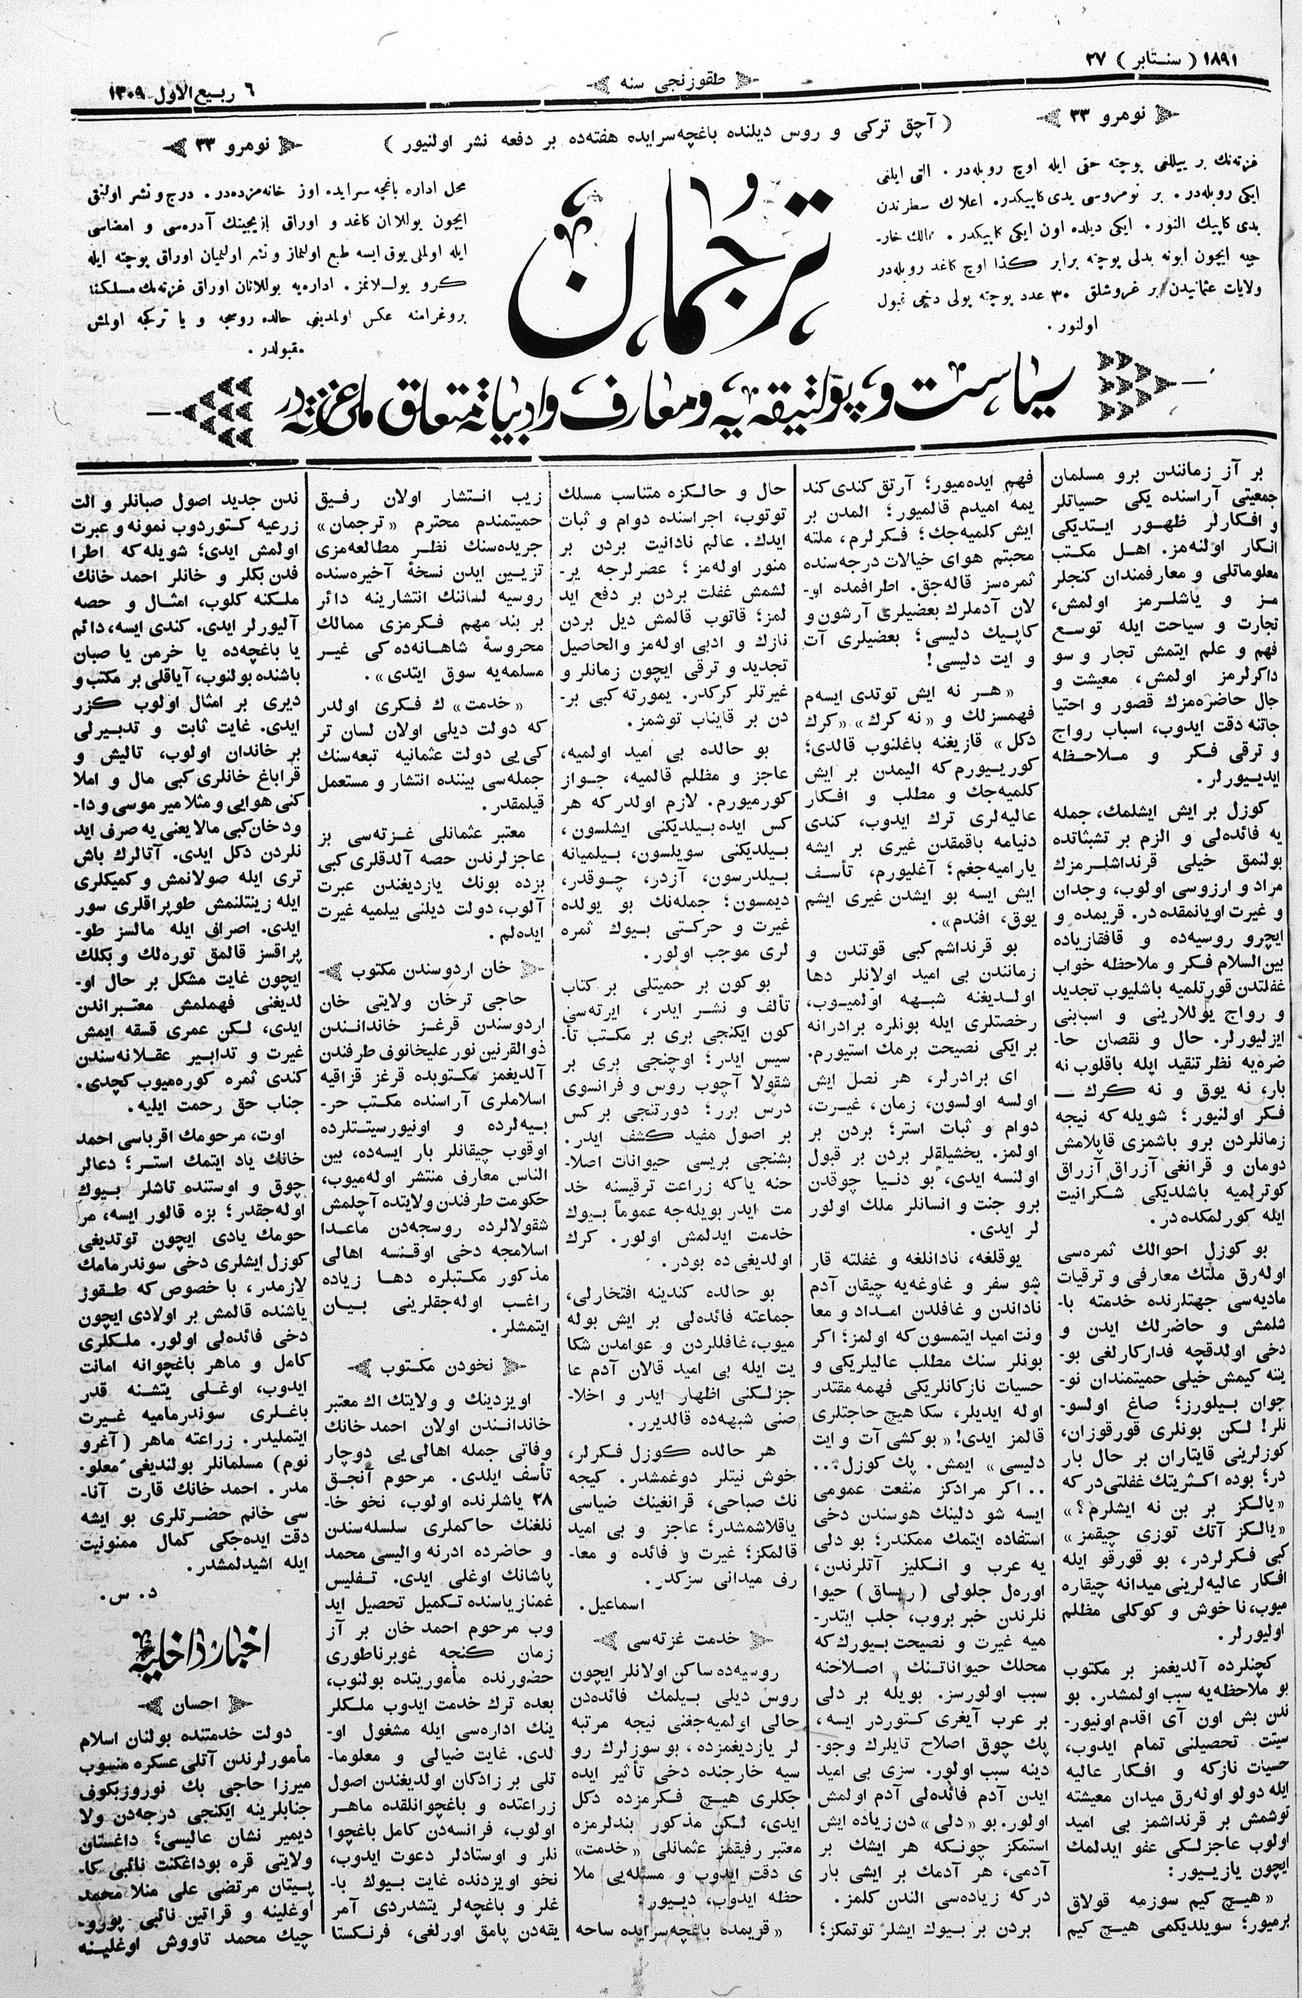 ١٨٩١ ( سنتابر ) ٢٧
طقوزنجی سنه
٦ ربیع‌الاول ١٣٠٩
نومرو ٣٣
( آچق ترکی و روس دیلنده باغچه‌سرایده هفته‌ده بر دفعه نشر اولنیور )
نومرو ٣٣
غزته‌نك بر ییللغی بوچته حقی ایله اوچ روبله‌در . التی ایلغی
ایکی روبله‌در . بر نومروسی یدی کاپیکدر. اعلانك سطرندن
یدی کاپیك النور . ایکی دیلده اون ایکی کاپیکدر . ممالك خار-
جیه ایچون ابونه بدلی بوچته برابر کذا اوچ کاغد روبله‌در
ولایات عثمانیدن بر غروشلق ٣٠ عدد بوچته پولی دخی قبول
اولنور .
ترجمان
محل اداره باغچه سرایده اوز خانه‌مزده‌در . درج و نشر اولنتی
ایچون یوللانان کاغد و اوراق ازیجینك آدره‌سی و امضاسی
ایله اولملی یوق ایسه طبع اولنماز و نشر اولنمیان اوراق بوچته ایله
کرو یوللانمز . اداره‌یه یوللانان اوراق غزته‌نك مسلکنه
بروغرامنه عکس اولمدیغی حالده روسجه و یا ترکجه اولمش
مقبولدر .
سیاست و پولتیقه‌یه و معارف و ادبیاته متعلق ملی غزته‌در
بر آز زمانندن برو مسلمان
جمعیتی آراسنده یکی حسیاتلر
و افکارلر ظهور ایتدیکی
انکار اولنه‌مز. اهل مکتب
معلوماتلی و معارفمندان کنجلر
مز و یاشلرمز اولمش،
تجارت و سیاحت ایله توسع
فهم و علم ایتمش تجار و سو
داکرلرمز اولمش، معیشت و
حال حاضره‌مزك قصور و احتیا
جاتنه دقت ایدوب، اسباب رواج
و ترقی فکر و ملاحظه
ایدییورلر.
کوزل بر ایش ایشلمك، جمله
یه فائده‌لی و الزم بر تشبثاتده
بولنمق خیلی قرنداشلرمزك
مراد و ارزوسی اولوب، وجدان
و غیرت اویانمقده‌در. قریمده و
ایچرو روسیه‌ده و قافقازیاده
بین‌السلام فکر و ملاحظه خواب
غفلتدن قورتلمیه باشلیوب تجدید
و رواج یوللارینی و اسبابنی
ایزلیورلر. حال و نقصان حا-
ضره‌یه نظر تنقید ایله باقلوب نه
بار، نه یوق و نه کرك —
فکر اولنیور؛ شویله که نیجه
زمانلردن برو باشمزی قاپلامش
دومان و قرانغی آزراق آزراق
کوترلمیه باشلدیکی شکرانیت
ایله کورلمکده‌در.
بو کوزل احوالك ثمره‌سی
اوله‌رق ملتك معارفی و ترقیات
مادیه‌سی جهتلرنده خدمته با-
شلمش و حاضرلك ایدن و
دخی اولدقچه فدارکارلغی بو-
یننه کیمش خیلی حمیتمندان نو-
جوان بیلورز؛ صاغ اولسو-
نلر! لکن بونلری قورقوزان،
کوزلرینی قایتاران بر حال بار
در؛ بوده اکثریتك غفلتی‌در که
«یالکز بر بن نه ایشلرم؟»
«یالکز آتك توزی چیقمز»
کبی فکرلردر، بو قورقو ایله
افکار عالیه‌لرینی میدانه چیقاره
میوب، نا خوش و کوکلی مظلم
اولیورلر.
کچنلرده آلدیغمز بر مکتوب
بو ملاحظه‌یه سبب اولمشدر. بو
ندن بش اون آی اقدم اونیور-
سیتت تحصیلنی تمام ایدوب،
حسیات نازکه و افکار عالیه
ایله دولو اوله‌رق میدان معیشته
توشمش بر قرنداشمز بی امید
اولوب عاجزلکی عفو ایدلمك
ایچون یازییور:
«هیچ کیم سوزمه قولاق
برمیور؛ سویلدیکمی هیچ کیم
فهم ایده‌میور؛ آرتق کندی کند
یمه امیدم قالمیور؛ المدن بر
ایش کلمیه‌جك؛ فکرلرم، ملته
محبتم هوای خیالات درجه‌سنده
ثمره‌سز قاله‌جق. اطرافمده او-
لان آدملرك بعضیلری آرشون و
کاپیك دلیسی؛ بعضیلری آت
و ایت دلیسی!
«هر نه ایش توتدی ایسه‌م
فهمسزلك و «نه کرك» «کرك
دکل» قازیغنه باغلنوب قالدی؛
کورییورم که الیمدن بر ایش
کلمیه‌جك و مطلب و افکار
عالیه‌لری ترك ایدوب، کندی
دنیامه باقمقدن غیری بر ایشه
یارامیه‌جغم؛ آغلیورم، تأسف
ایش ایسه بو ایشدن غیری ایشم
یوق، افندم».
بو قرنداشم کبی قوتندن و
زمانندن بی امید اولانلر دها
اولدیغنه شبهه اولمیوب،
رخصتلری ایله بونلره برادرانه
بر ایکی نصیحت برمك استیورم.
ای برادرلر، هر نصل ایش
اولسه اولسون، زمان، غیرت،
دوام و ثبات استر؛ بردن بر
اولمز. یخشیلقلر بردن بر قبول
اولنسه ایدی، بو دنیا چوقدن
برو جنت و انسانلر ملك اولور
لر ایدی.
یوقلغه، نادانلغه و غفلته قار
شو سفر و غاوغه‌یه چیقان آدم
ناداندن و غافلدن امداد و معا
ونت امید ایتمسون که اولمز؛ اکر
بونلر سنك مطلب عالیلریکی و
حسیات نازکانلریکی فهمه مقتدر
اوله ایدیلر، سکا هیچ حاجتلری
قالمز ایدی! «بوکشی آت و ایت
دلیسی» ایمش. پك کوزل...
.. اکر مرادکز منفعت عمومی
ایسه شو دلینك هوسندن دخی
استفاده ایتمك ممکندر؛ بو دلی
یه عرب و انکلیز آتلرندن،
اوره‌ل جلولی (ریساق) حیوا
نلرندن خبر بروب، جلب ایتدر-
میه غیرت و نصیحت بیورك که
محلك حیواناتنك اصلاحنه
سبب اولورسز. بویله بر دلی
بر عرب آیغری کتوردر ایسه،
پك چوق اصلاح تایلرك وجو-
دینه سبب اولور. سزی بی امید
ایدن آدم فائده‌لی آدم اولمش
اولور. بو «دلی» دن زیاده ایش
استمکز چونکه هر ایشك بر
آدمی، هر آدمك بر ایشی بار
درکه زیاده‌سی الندن کلمز.
بردن بر بیوك ایشلر توتمکز؛
حال و حالکزه متناسب مسلك
توتوب، اجراسنده دوام و ثبات
ایدك. عالم نادانیت بردن بر
منور اوله‌مز؛ عصرلرجه یر-
لشمش غفلت بردن بر دفع اید
لمز؛ قاتوب قالمش دیل بردن
نازك و ادبی اوله‌مز والحاصل
تجدید و ترقی ایچون زمانلر و
غیرتلر کرکدر. یمورته کبی بر-
دن بر قایناب توشمز.
بو حالده بی امید اولمیه،
عاجز و مظلم قالمیه، جواز
کورمیورم. لازم اولدر که هر
کس ایده بیلدیکنی ایشلسون،
بیلدیکنی سویلسون، بیلمیانه
بیلدرسون، آزدر، چوقدر،
دیمسون؛ جمله‌نك بو یولده
غیرت و حرکتی بیوك ثمره
لری موجب اولور.
بو کون بر حمیتلی بر کتاب
تألف و نشر ایدر، ایرته‌سی
کون ایکنجی بری بر مکتب تأ
سیس ایدر؛ اوچنجی بری بر
شقولا آچوب روس و فرانسوی
درس برر؛ دورتنجی برکس
بر اصول مفید کشف ایدر.
بشنجی بریسی حیوانات اصلا-
حنه یاکه زراعت ترقیسنه خد
مت ایدر بویله‌جه عموماً بیوك
خدمت ایدلمش اولور. کرك
اولدیغی ده بودر.
بو حالده کندینه افتخارلی،
جماعته فائده‌لی بر ایش بوله
میوب، غافللردن و عوامدن شکا
یت ایله بی امید قالان آدم عا
جزلکنی اظهار ایدر و اخلا-
صنی شبهه‌ده قالدیرر.
هر حالده کوزل فکرلر،
خوش نیتلر دوغمشدر. کیجه
نك صباحی، قرانغینك ضیاسی
یاقلاشمشدر؛ عاجز و بی امید
قالمکز؛ غیرت و فائده و معا-
رف میدانی سزکدر.
اسماعیل.
خدمت غزته‌سی
روسیه‌ده ساکن اولانلر ایچون
روس دیلی بیلمك فائده‌دن
حالی اولمیه‌جغنی نیجه مرتبه
لر یازدیغمزده، بو سوزلرك رو
سیه خارجنده دخی تأثیر ایده
جکلری هیچ فکرمزده دکل
ایدی، لکن مذکور بندلرمزه
معتبر رفیقمز عثمانلی «خدمت»
ی دقت ایدوب و مسئله‌یی ملا
حظه ایدوب، دییور:
«قریمده باغچه‌سرایده ساحه
زیب انتشار اولان رفیق
حمیتمندم محترم «ترجمان»
جریده‌سنك نظر مطالعه‌مزی
تزیین ایدن نسخهٔ آخیره‌سنده
روسیه لساننك انتشارینه دائر
بر بند مهم فکرمزی ممالك
محروسهٔ شاهانه‌ده‌کی غیر
مسلمه‌یه سوق ایتدی».
«خدمت» ك فکری اولدر
که دولت دیلی اولان لسان تر
کی‌یی دولت عثمانیه تبعه‌سنك
جمله‌سی بیننده انتشار و مستعمل
قیلمقدر.
معتبر عثمانلی غزته‌سی بز
عاجزلرندن حصه آلدقلری کبی
بزده بونك یازدیغندن عبرت
آلوب، دولت دیلنی بیلمیه غیرت
ایده‌لم.
خان اردوسندن مکتوب
حاجی ترخان ولایتی خان
اردوسندن قرغز خاندانندن
ذوالقرنین نور علیخانوف طرفندن
آلدیغمز مکتوبده قرغز قزاقیه
اسلاملری آراسنده مکتب حر-
بیه‌لرده و اونیورسیتتلرده
اوقوب چیقانلر بار ایسه‌ده، بین
الناس معارف منتشر اوله‌میوب،
حکومت طرفندن ولایتده آچلمش
شقولالرده روسجه‌دن ماعدا
اسلامجه دخی اوقنسه اهالی
مذکور مکتبلره دها زیاده
راغب اوله‌جقلرینی بیان
ایتمشلر.
نخودن مکتوب
اویزدینك و ولایتك اك معتبر
خاندانندن اولان احمد خانك
وفاتی جمله اهالی‌یی دوچار
تأسف ایلدی. مرحوم آنجق
٢٨ یاشلرنده اولوب، نخو خا-
نلغنك حاکملری سلسله‌سندن
و حاضرده ادرنه والیسی محمد
پاشانك اوغلی ایدی. تفلیس
غمنازیاسنده تکمیل تحصیل اید
وب مرحوم احمد خان بر آز
زمان کنجه غوبرناطوری
حضورنده مأموریتده بولنوب،
بعده ترك خدمت ایدوب ملکلر
ینك اداره‌سی ایله مشغول او-
لدی. غایت ضیالی و معلوما-
تلی بر زادکان اولدیغندن اصول
زراعتده و باغچوانلقده ماهر
اولوب، فرانسه‌دن کامل باغچوا
نلر و اوستادلر دعوت ایدوب،
نخو اویزدنده غایت بیوك با-
غلر و باغچه‌لر یتشدردی آمر
یقه‌دن پامق اورلغی، فرنکستا
ندن جدید اصول صبانلر و الت
زرعیه کتوردوب نمونه و عبرت
اولمش ایدی؛ شویله که اطرا
فدن بکلر و خانلر احمد خانك
ملکنه کلوب، امثال و حصه
آلیورلر ایدی. کندی ایسه، دائم
یا باغچه‌ده یا خرمن یا صبان
باشنده بولنوب، آیاقلی بر مکتب و
دیری بر امثال اولوب کزر
ایدی. غایت ثابت و تدبیرلی
بر خاندان اولوب، تالیش و
قراباغ خانلری کبی مال و املا
کنی هوایی و مثلا میر موسی و دا-
ود خان کبی مالا یعنی یه صرف اید
نلردن دکل ایدی. آتالرك باش
تری ایله صولانمش و کمیکلری
ایله زینتلنمش طوپراقلری سور
ایدی. اصرافی ایله مالسز طو-
پراقسز قالمق توره‌لك و بکلك
ایچون غایت مشکل بر حال او-
لدیغنی فهملمش معتبراندن
ایدی، لکن عمری قسقه ایمش
غیرت و تدابیر عقلانه‌سندن
کندی ثمره کوره‌میوب کچدی.
جناب حق رحمت ایلیه.
اوت، مرحومك اقرباسی احمد
خانك یاد ایتمك استر؛ دعالر
چوق و اوستنده تاشلر بیوك
اوله‌جقدر؛ بزه قالور ایسه، مر
حومك یادی ایچون توتدیغی
کوزل ایشلری دخی سوندرمامك
لازمدر، با خصوص که طقوز
یاشنده قالمش بر اولادی ایچون
دخی فائده‌لی اولور. ملکلری
کامل و ماهر باغچوانه امانت
ایدوب، اوغلی یتشنه قدر
باغلری سوندرمامیه غیرت
ایتملیدر. زراعته ماهر (آغرو
نوم) مسلمانلر بولندیغی معلو-
مدر. احمد خانك قارت آنا-
سی خانم حضرتلری بو ایشه
دقت ایده‌جکی کمال ممنونیت
ایله اشیدلمشدر.
د. س.
اخبار داخلیه
احسان
دولت خدمتنده بولنان اسلام
مأمورلرندن آتلی عسکره منسوب
میرزا حاجی بك نوروزبکوف
جنابلرینه ایکنجی درجه‌دن ولا
دیمیر نشان عالیسی؛ داغستان
ولایتی قره بوداغکنت نائبی کا-
پیتان مرتضی علی منلا محمد
اوغلینه و قراتین نائبی پورو-
چیك محمد تاووش اوغلینه